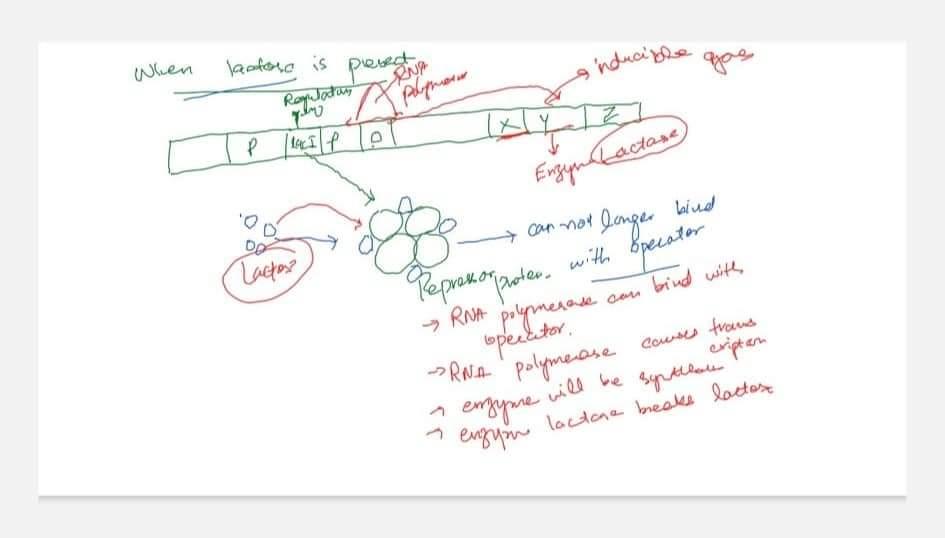 When lactose is present
RNA
polymerase
inducible
Regulatory
P
lac I
P
O
X
Y
Z
Enzyme Lactase
Lactose
can not longer bind
with operator
Repressor protein
→ RNA polymerase can bind with
operator.
→ RNA polymerase causes trans
cription
→ enzyme will be
→ enzyme lactase breaks lactose